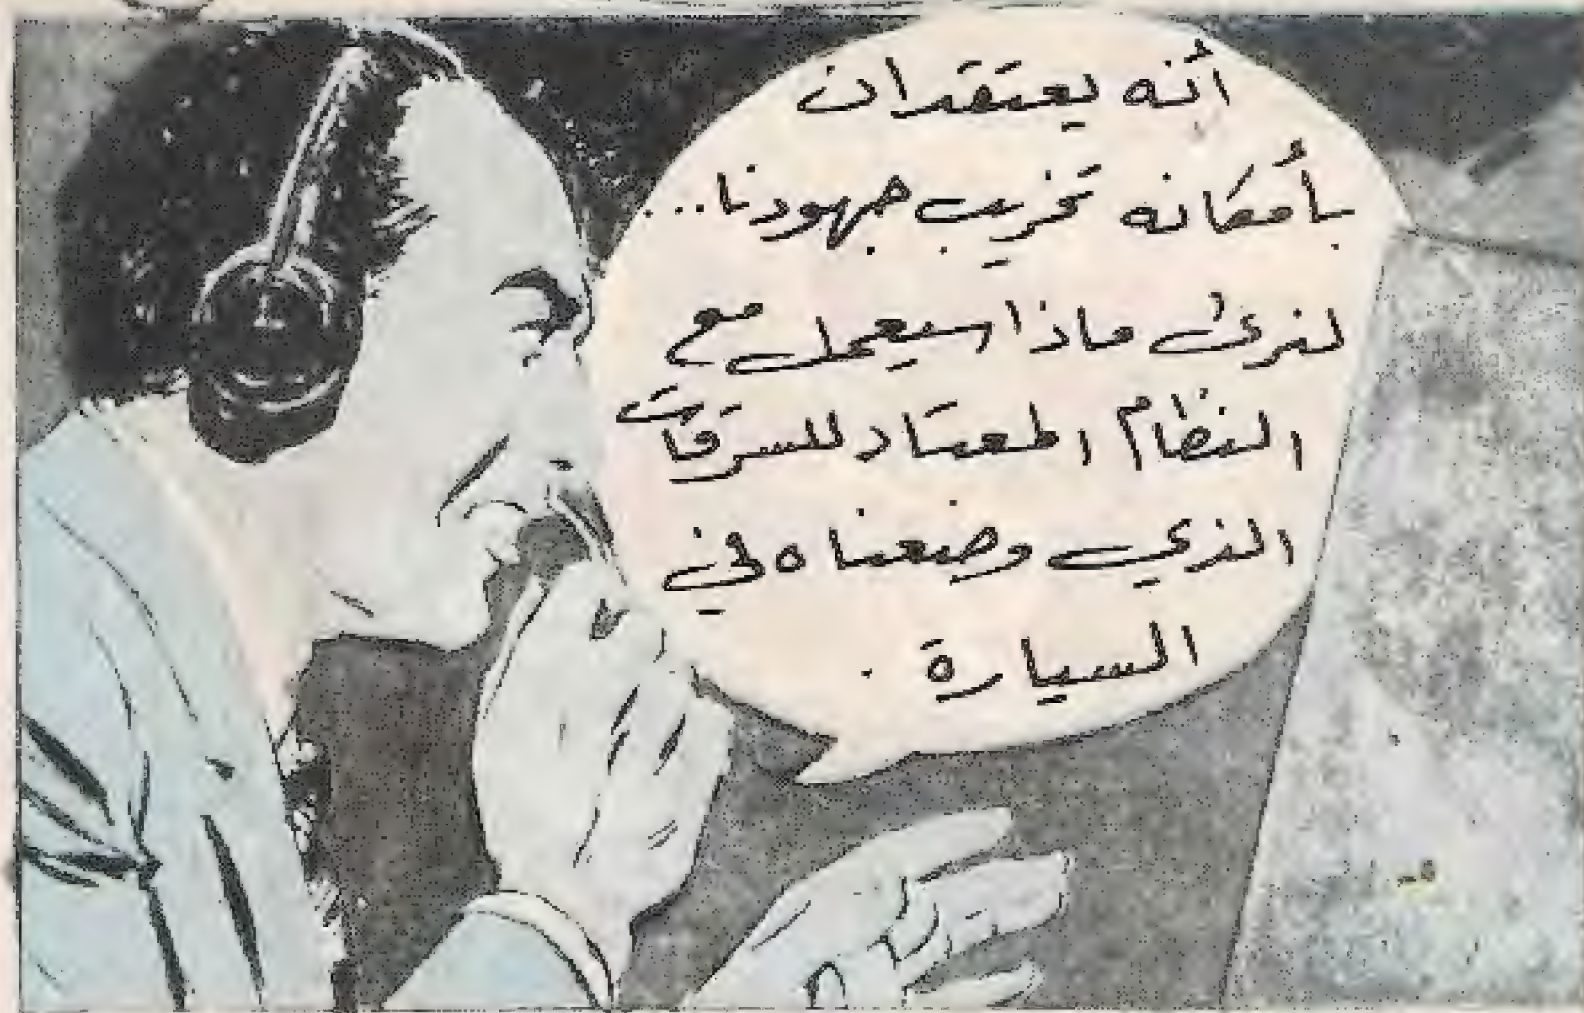 أنه يعتقد ان
بأمكانه تخريب جهودنا...
لنرى ماذا سيعمل مع
النظام المعتاد للسرقات
الذي وضعناه في
السيارة .